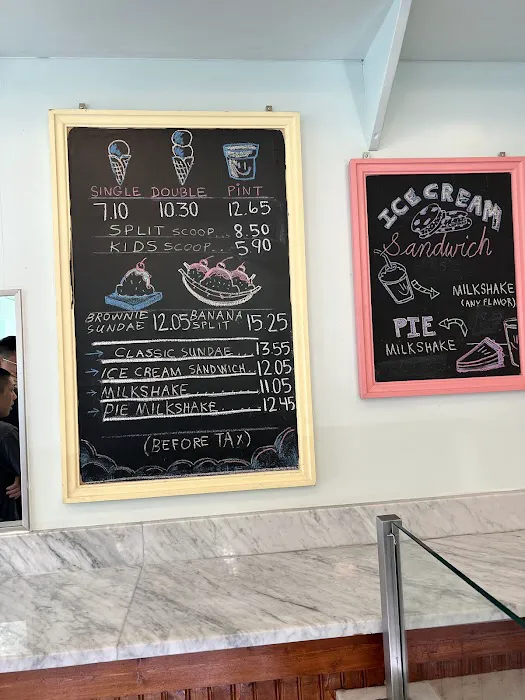 SINGLE DOUBLE PINT
7.10 10.30 12.65
SPLIT SCOOP... 8.50
KIDS SCOOP... 5.90
BROWNIE SUNDAE 12.05 BANANA SPLIT 15.25
CLASSIC SUNDAE... 13.55
ICE CREAM SANDWICH... 12.05
MILKSHAKE 11.05
PIE MILKSHAKE 12.45
(BEFORE TAX)
ICE CREAM
Sandwich
MILKSHAKE
(ANY FLAVOR)
PIE
MILKSHAKE